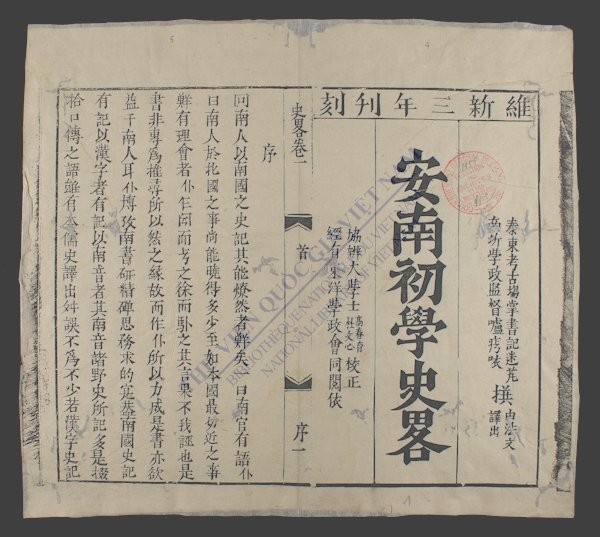 維新三年刊刻
泰東考古場掌書記迷芃
學政監督
撰
由法文譯出
安南初學史畧
協辦大學士高春育杜文心校正
經有東洋學政會同閱依
史畧卷一 首 序一
序
回南人以南國之史記其能燦然者鮮矣 日南官有語仆
曰南人於北國之事尚能曉得多少至如本國最切近之事
鮮有理會者仆乍聞而考之徐而卧之其言果不我誣也是
書非專爲推尋所以然之緣故而作仆所以力成是書亦欲
益于南人耳仆博攻南書研精碑思務求的寔蓋南國史記
有記以漢字者有記以南音者其南音諸野史所記多是掇
拾口傳之語雖有本儒史譯出舛誤不爲不少若漢字史記
THƯ VIỆN QUỐC GIA VIỆT NAM
BIBLIOTHÈQUE NATIONALE DU VIETNAM
NATIONAL LIBRARY OF VIETNAM